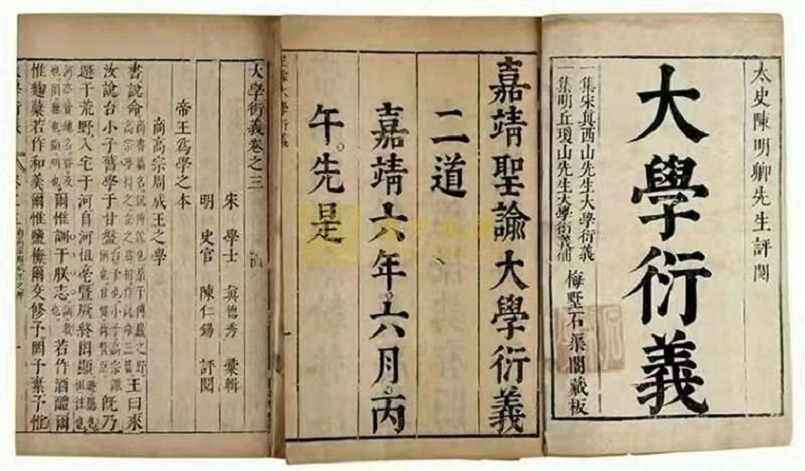 太史陳明卿先生評閱
大學衍義
一集宋真西山先生大學衍義
一集明丘瓊山先生大學衍義補
梅墅石渠閣藏板
嘉靖聖諭大學衍義
二道
嘉靖六年六月丙
午先是
大學衍義卷之三
宋 學士 真德秀 彙輯
明 史官 陳仁錫 評閱
帝王為學之本
商高宗周成王之學
書說命
王曰來
汝說台小子舊學于甘盤
既乃
遯于荒野入宅于河自河徂亳暨厥終罔顯
爾惟訓于朕志
若作酒醴爾
惟麴糵若作和羹爾惟鹽梅爾交修予罔予棄予惟